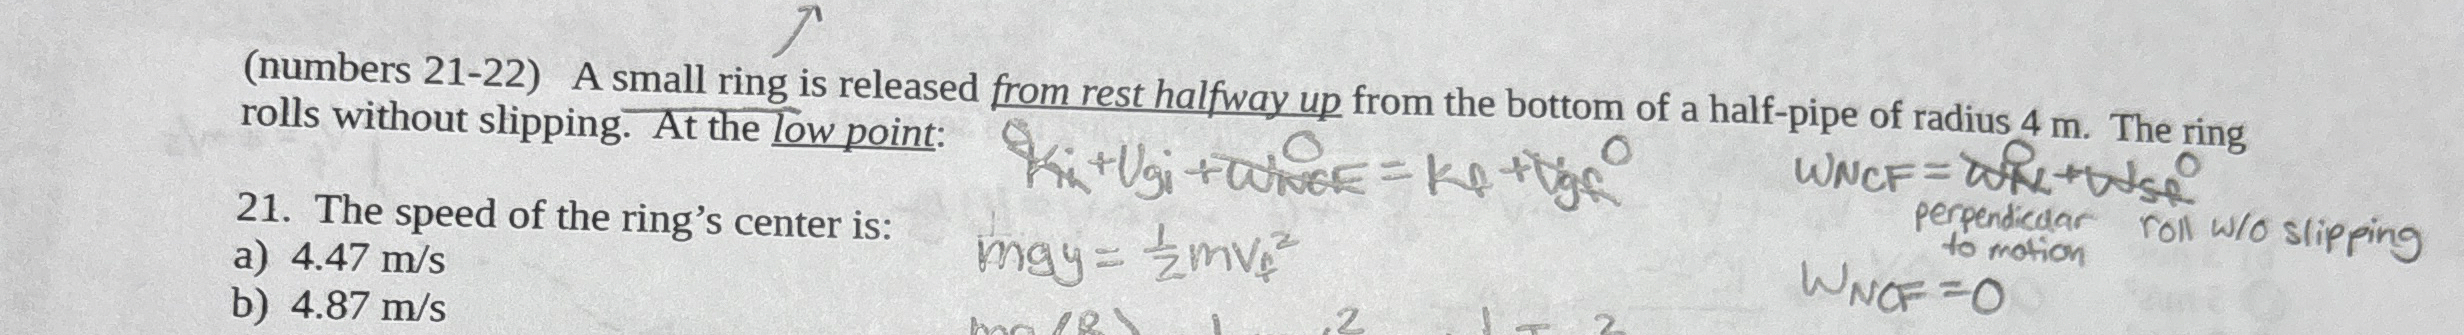 (numbers 21-22) A small ring is released from rest halfway up from the bottom of a half-pipe of radius 4 m. The ring
rolls without slipping. At the low point:
Ki + Ugi + WNCF 0 = Kf + Ugf 0
WNCF = WN 0 + Wsf 0
perpendicular to motion
roll w/o slipping
WNCF = 0
21. The speed of the ring's center is:
mgy = 1/2 mvf²
a) 4.47 m/s
b) 4.87 m/s